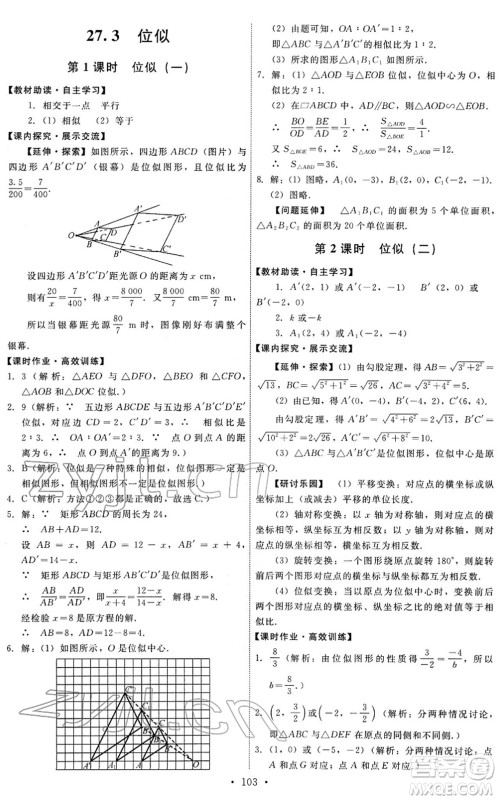 27.3 位似
第1课时 位似(一)
【教材助读·自主学习】
1. 相交于一点 平行
2. (1)相似 (2)等于
【课内探究·展示交流】
【延伸·探索】 四边形ABCD(图片)与
四边形A'B'C'D'(银幕)是位似图形,且位似比为
3.5/200=7/400.
设四边形A'B'C'D'距光源O的距离为x cm,
则有20/x=7/400,x=8 000/7,8 000/7 cm=80/7 m.
所以当银幕距光源80/7 m时,图像刚好布满整个
银幕.
【课时作业·高效训练】
1. 3(解析:△AEO与△DFO、△BEO与△CFO、
△AOB与△DOC位似.)
2. 9(解析:∵ 五边形ABCDE与五边形
A'B'C'D'E'是位似图形,∵ 相似比为
2∶3,∴ OA∶OA'=2∶3.∵ OA=6,
∴ OA'=9,即点O到点A'的距离为9.)
3. B(解析:位似是一种特殊的相似,位似图形一
定相似,但相似图形不一定是位似图形.)
4. C(解析:方法①②③都可以.)
5. 解:∵ 矩形ABCD的周长为24,
∴ AB+AD=12.
设AB=x,则AD=12-x,AB'=x+4,
AD'=14-x.
∵ 矩形ABCD与矩形AB'C'D'是位似图形,
∴ AB/AB'=AD/AD',即x/(x+4)=(12-x)/(14-x).x=8.
经检验x=8是原方程的解.
∴ AB=8,AD=12-8=4.
6. 解:(1)如图所示,O是位似中心.
(2)由题可知,OA∶OA'=1∶2,
即△ABC与△A'B'C'的位似比为1∶2.
(3)所求的图形△A₁B₁C₁如图所示.
7. 解:(1)△AOD与△EOB位似,位似中心为O,
位似比为3∶2.
(2)∵ □ABCD中,△AOD∽△EOB,
∴ BO/OD=BE/AD=2/3.∴ S△BOE/S△AOD=4/9.
又∵ S△BOE=6,∴ 6/S△AOD=4/9,
∴ S△AOD=27/2.
8. 解:(1)图略,A₁(2,4),B₁(2,1),C₁(-2,-1).
(2)图略.
【问题延伸】 △A₁B₁C₁的面积为5个单位面积,
△A₂B₂C₂的面积为20个单位面积.
第2课时 位似(二)
【教材助读·自主学习】
1. A'(2,1)或A'(-2,-1) B'(2,0)或
B'(-2,0)
2. k或-k
3. A₁(2,2)或A₁(-2,-2)
【课内探究·展示交流】
【延伸·探索】 (1)由勾股定理,得AB=√(3²+2²)
=√13,AC=√(5²+1²)=√26,BC=√(3²+2²)=√13.
(2)由勾股定理,得A'B'=√(4²+6²)=√52,A'C'=
√(10²+2²)=√104,B'C'=√(4²+6²)=√52.
(3)由勾股定理,得OA'=√(6²+2²)=√40,
OA=√(3²+1²)=√10.
【研讨乐园】 (1)平移变换:对应点的横坐标
或纵坐标加上(或减去)平移的单位长度.
(2)轴对称变换:以x轴为对称轴,则对应点的
横坐标相等,纵坐标互为相反数;以y轴为对称轴,则
对应点的纵坐标相等,横坐标互为相反数.
(3)旋转变换:一个图形绕原点旋转180°,则旋
转前后两个图形对应点的横坐标与纵坐标都互为相
反数.
(4)位似变换:当以原点为位似中心时,变换前
后两个图形对应点的横坐标、纵坐标之比的绝对值等
于相似比.
【课时作业·高效训练】
1. 8/3(解析:由位似图形的性质得3/-2=-4/b,
b=8/3.)
2. (2,3/2)或(-2,-3/2)(解析:分两种情况讨
论,即点P与其对应点在原点的同侧和不同侧.)
3. (1,0)或(-5,-2)(解析:分两种情况讨论,
点E的对应点是点A或点C.)
· 103 ·